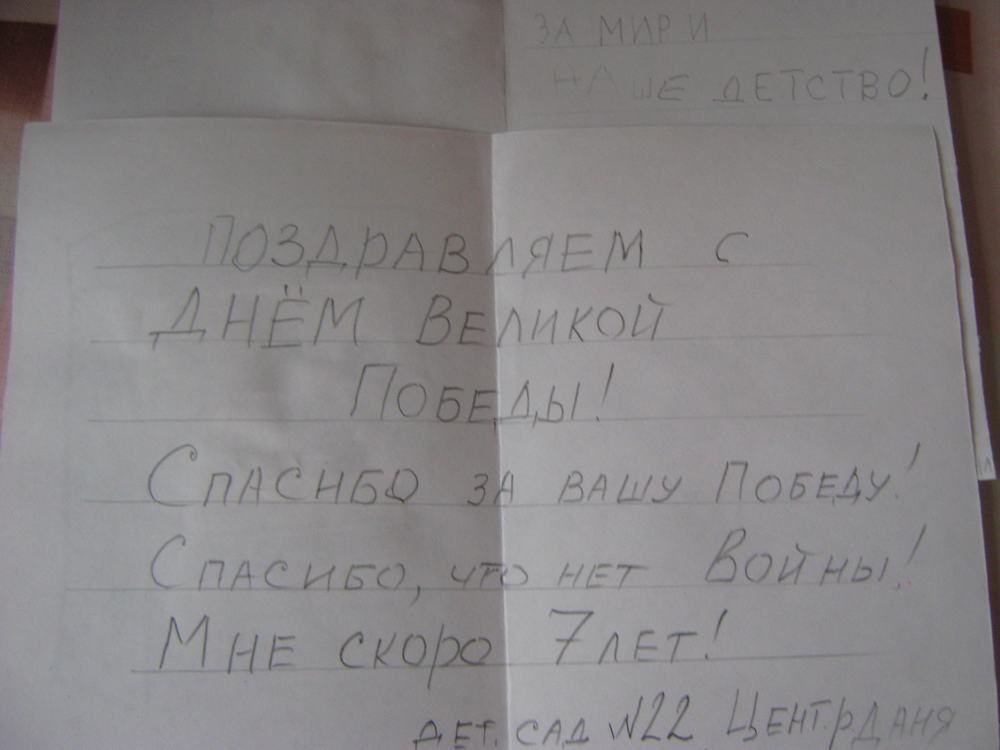 ЗА МИР И
НАШЕ ДЕТСТВО!
ПОЗДРАВЛЯЕМ С
ДНЁМ ВЕЛИКОЙ
ПОБЕДЫ!
СПАСИБО ЗА ВАШУ ПОБЕДУ!
СПАСИБО, ЧТО НЕТ ВОЙНЫ!
МНЕ СКОРО 7 ЛЕТ!
ДЕТ. САД №22 ЦЕНТ.Р. ДАНЯ